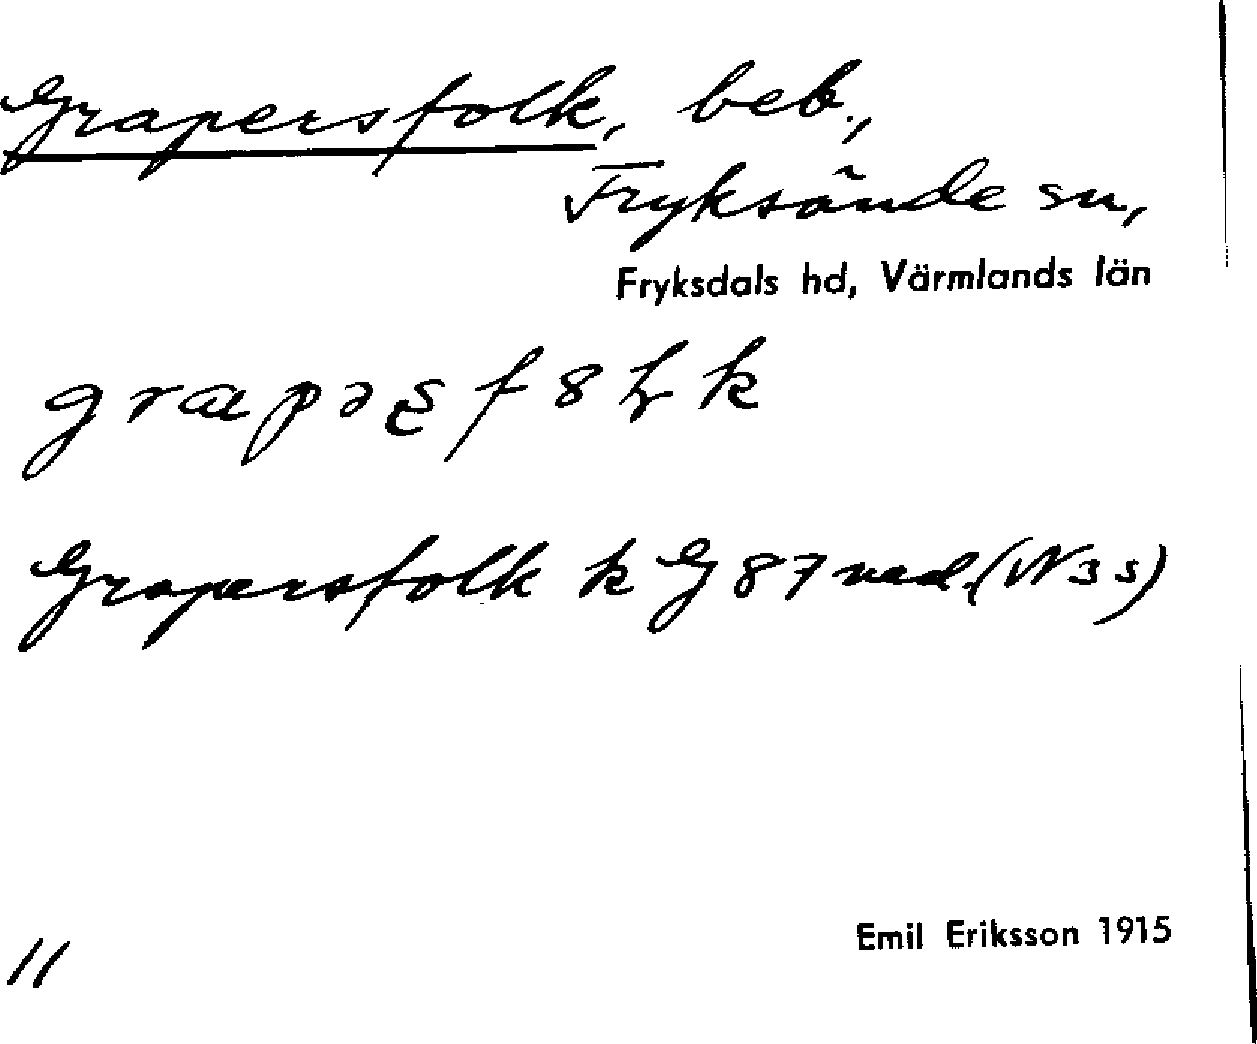 Grapersfolk, beb.,
Fryksände sn,
Fryksdals hd, Värmlands län
Grapersfolk k G 87 ned. (W3s)
Emil Eriksson 1915
11